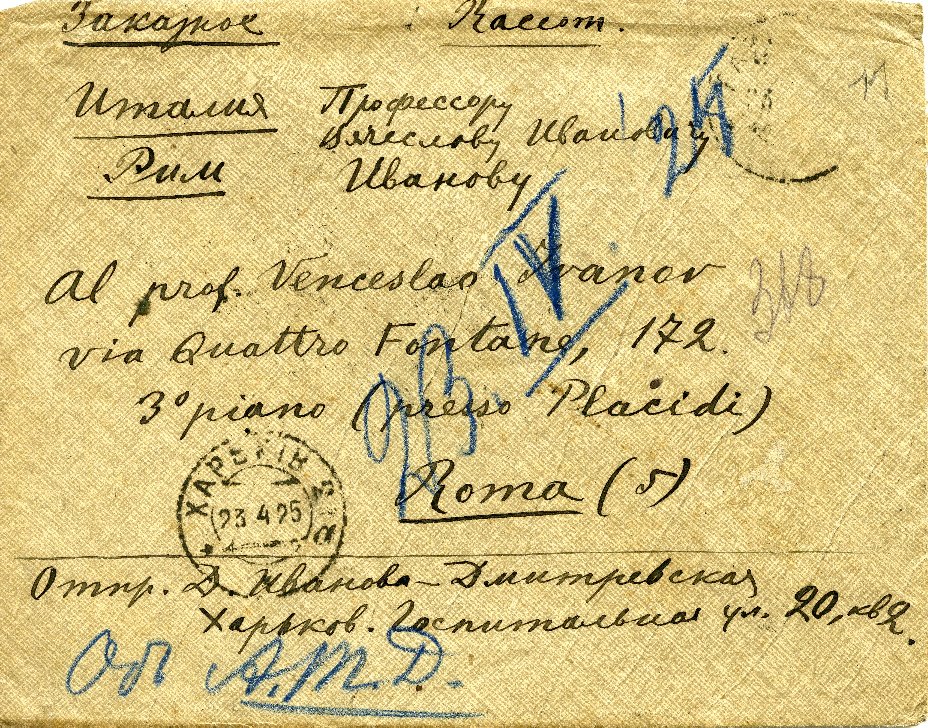 Заказное
Италия
Рим
Профессору
Вячеславу Ивановичу
Иванову
Al prof. Venceslao Ivanov
via Quattro Fontane, 172.
3° piano (presso Placidi)
Roma (5)
23. IV.
ХАРЬКІВ
23 4 25
Отпр. Д. Иванова-Дмитревская
Харьков. Госпитальная ул. 20, кв 2.